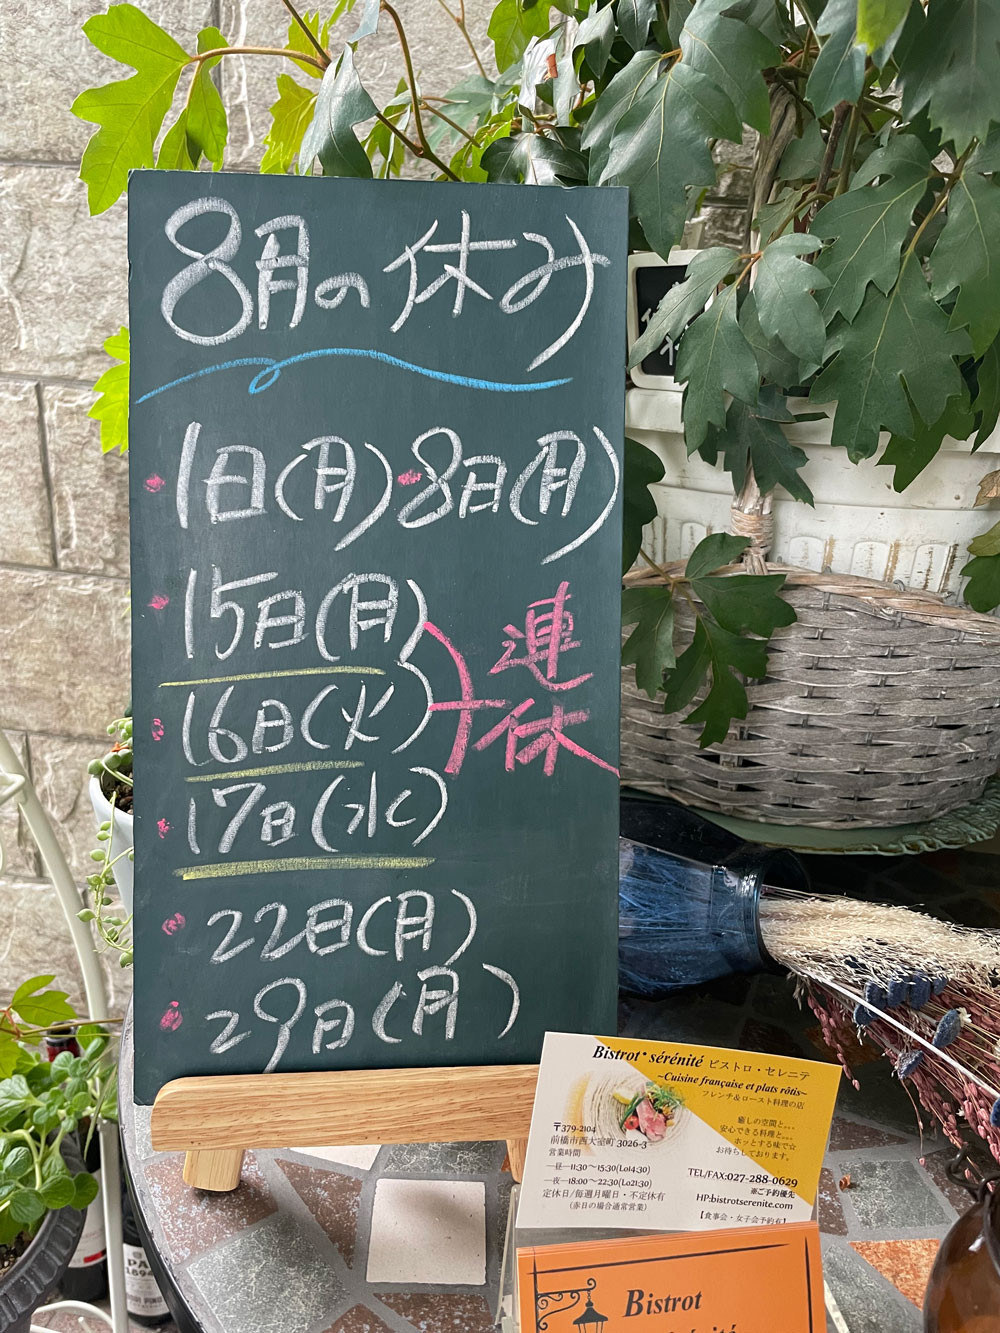 8月の休み
・1日(月)・8日(月)
・15日(月)
・16日(火)
・17日(水)
連休
・22日(月)
・29日(月)
Bistrot・sérénité ビストロ・セレニテ
~Cuisine française et plats rôtis~
フレンチ&ロースト料理の店
癒しの空間と…
安心できる料理と…
ホッとする味で☆
お待ちしております。
〒379-2104
前橋市西大室町 3026-3
営業時間
―昼―11:30~15:30(Lo14:30)
―夜―18:00~22:30(Lo21:30)
定休日/毎週月曜日・不定休有
(赤日の場合通常営業)
TEL/FAX:027-288-0629
※ご予約優先
HP:bistrotserenite.com
【食事会・女子会予約有】
Bistrot